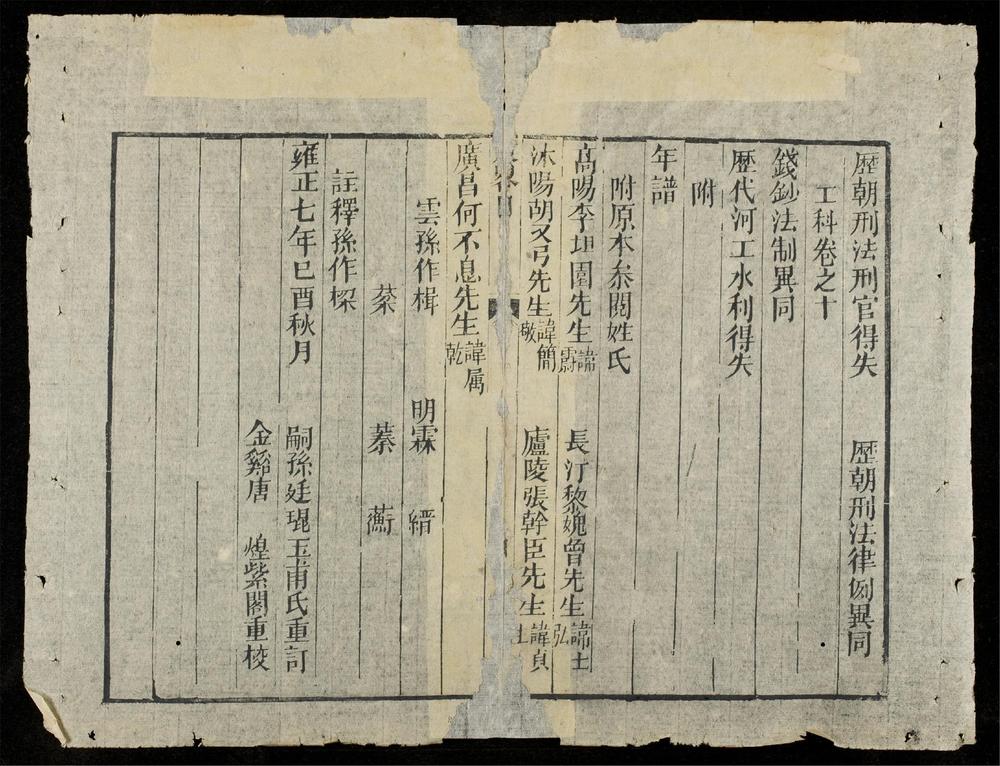 歷朝刑法刑官得失　歷朝刑法律例異同
工科卷之十
錢鈔法制異同
歷代河工水利得失
附
年譜
附原本叅閱姓氏
高陽李坦園先生諱霨　長汀黎媿曾先生諱士弘
沐陽胡又弓先生諱簡敬　廬陵張幹臣先生諱貞士
目
廣昌何不息先生諱属乾
雲孫作楫　明霖　縉
蔡　蓁　蘅
註釋孫作樑
雍正七年巳酉秋月　嗣孫廷琨玉甫氏重訂
金谿唐　煌紫閣重校